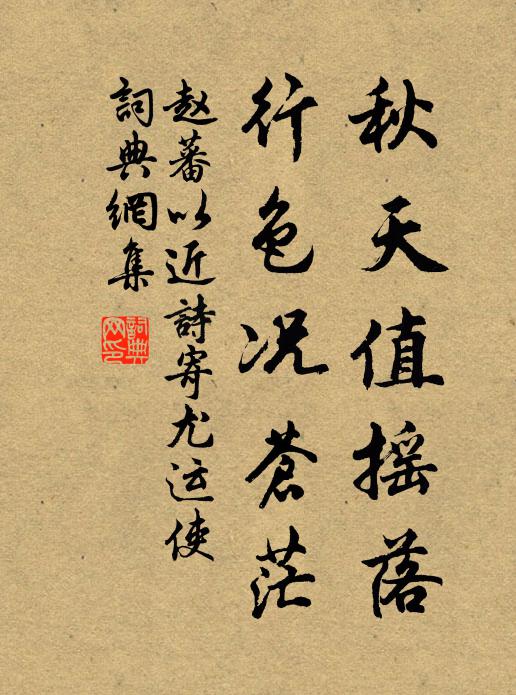 秋天值摇落
行色况蒼茫
赵蕃以近詩寄尤运使
詞典網集
詞典网印